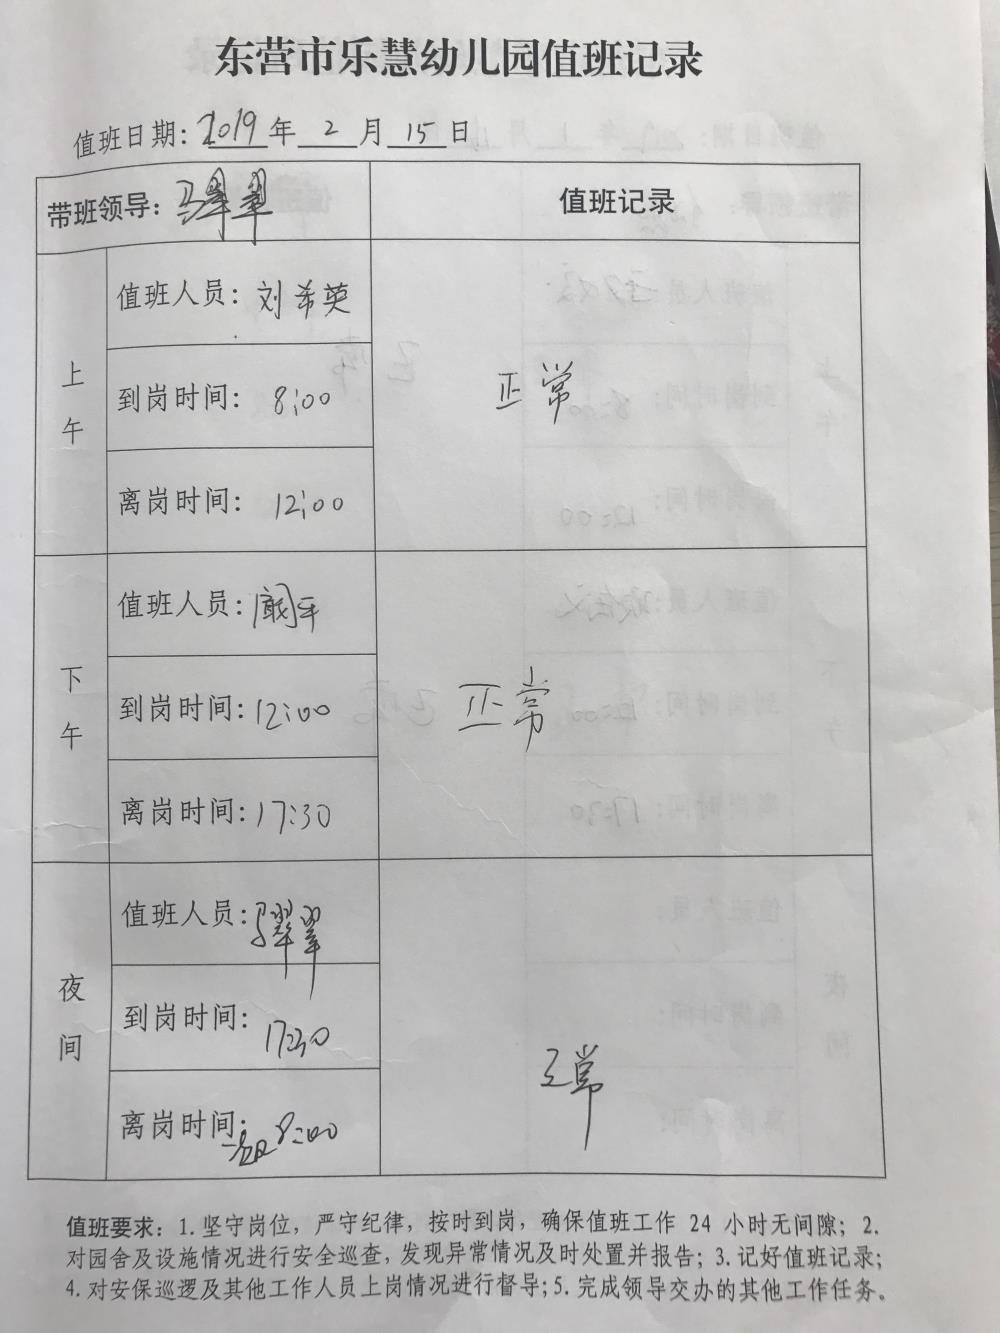 东营市乐慧幼儿园值班记录
值班日期：2019年 2 月 15 日
带班领导：马翠翠
值班记录
上午
值班人员：刘希英
到岗时间：8:00
离岗时间：12:00
正常
下午
值班人员：
到岗时间：12:00
离岗时间：17:30
正常
夜间
值班人员：马翠翠
到岗时间：
17:30
离岗时间：
次日8:00
正常
值班要求：1. 坚守岗位，严守纪律，按时到岗，确保值班工作 24 小时无间隙；2.
对园舍及设施情况进行安全巡查，发现异常情况及时处置并报告；3. 记好值班记录；
4. 对安保巡逻及其他工作人员上岗情况进行督导；5. 完成领导交办的其他工作任务。